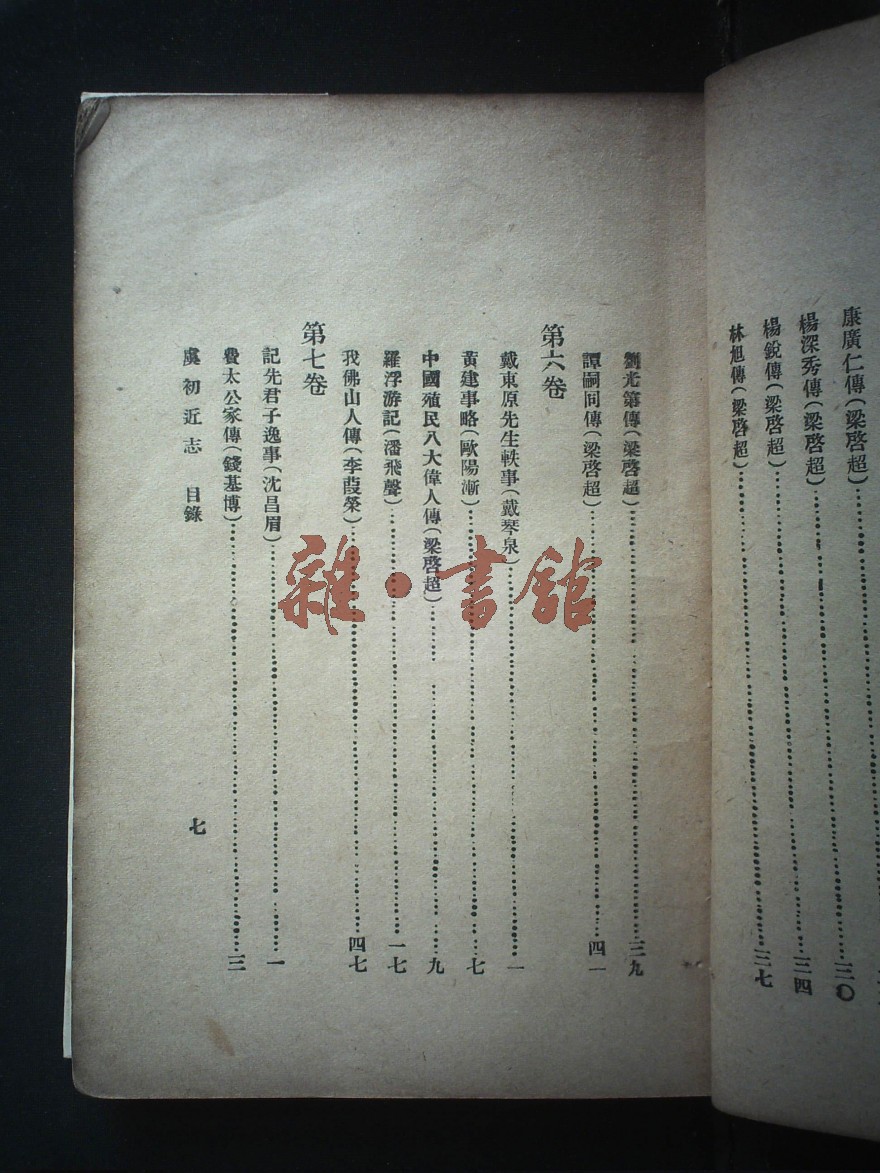 康廣仁傳(梁啓超)三〇
楊深秀傳(梁啓超)三四
楊銳傳(梁啓超)
林旭傳(梁啓超)三七
劉光第傳(梁啓超)三九
譚嗣同傳(梁啓超)四一
第六卷
戴東原先生軼事(戴琴泉)一
黃建事略(歐陽漸)七
中國殖民八大偉人傳(梁啓超)九
羅浮游記(潘飛聲)一七
我佛山人傳(李葭榮)四七
第七卷
記先君子逸事(沈昌眉)一
費太公家傳(錢基博)三
虞初近志 目錄
七
雜·書館